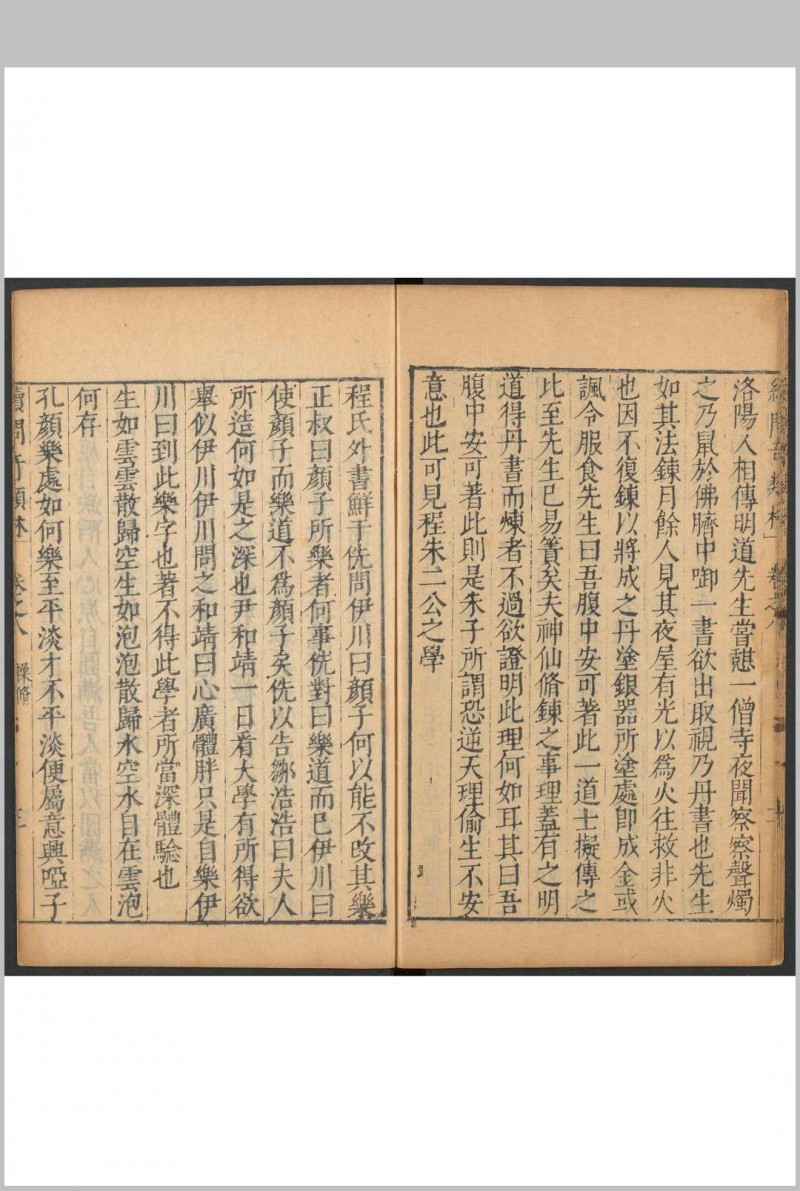 洛陽人相傳明道先生嘗憇一僧寺夜聞察察聲燭
之乃鼠於佛臍中啣一書欲出取視乃丹書也先生
如其法鍊月餘人見其夜屋有光以爲火往救非火
也因不復鍊以將成之丹塗銀器所塗處卽成金或
諷令服食先生曰吾腹中安可著此一道士擬傳之
比至先生已易簀矣夫神仙脩鍊之事理蓋有之明
道得丹書而煉者不過欲證明此理何如耳其曰吾
腹中安可著此則是朱子所謂恐逆天理偷生不安
意也此可見程朱二公之學
程氏外書鮮于侁問伊川曰顏子何以能不改其樂
正叔曰顏子所樂者何事侁對曰樂道而已伊川曰
使顏子而樂道不爲顏子矣侁以告鄒浩浩曰夫人
所造何如是之深也尹和靖一日看大學有所得欲
舉似伊川伊川問之和靖曰心廣體胖只是自樂伊
川曰到此樂字也著不得此學者所當深體驗也
生如雲雲散歸空生如泡泡散歸水空水自在雲泡
何存
孔顏樂處如何樂至平淡才不平淡便屬意興啞子
卷之八 操脩